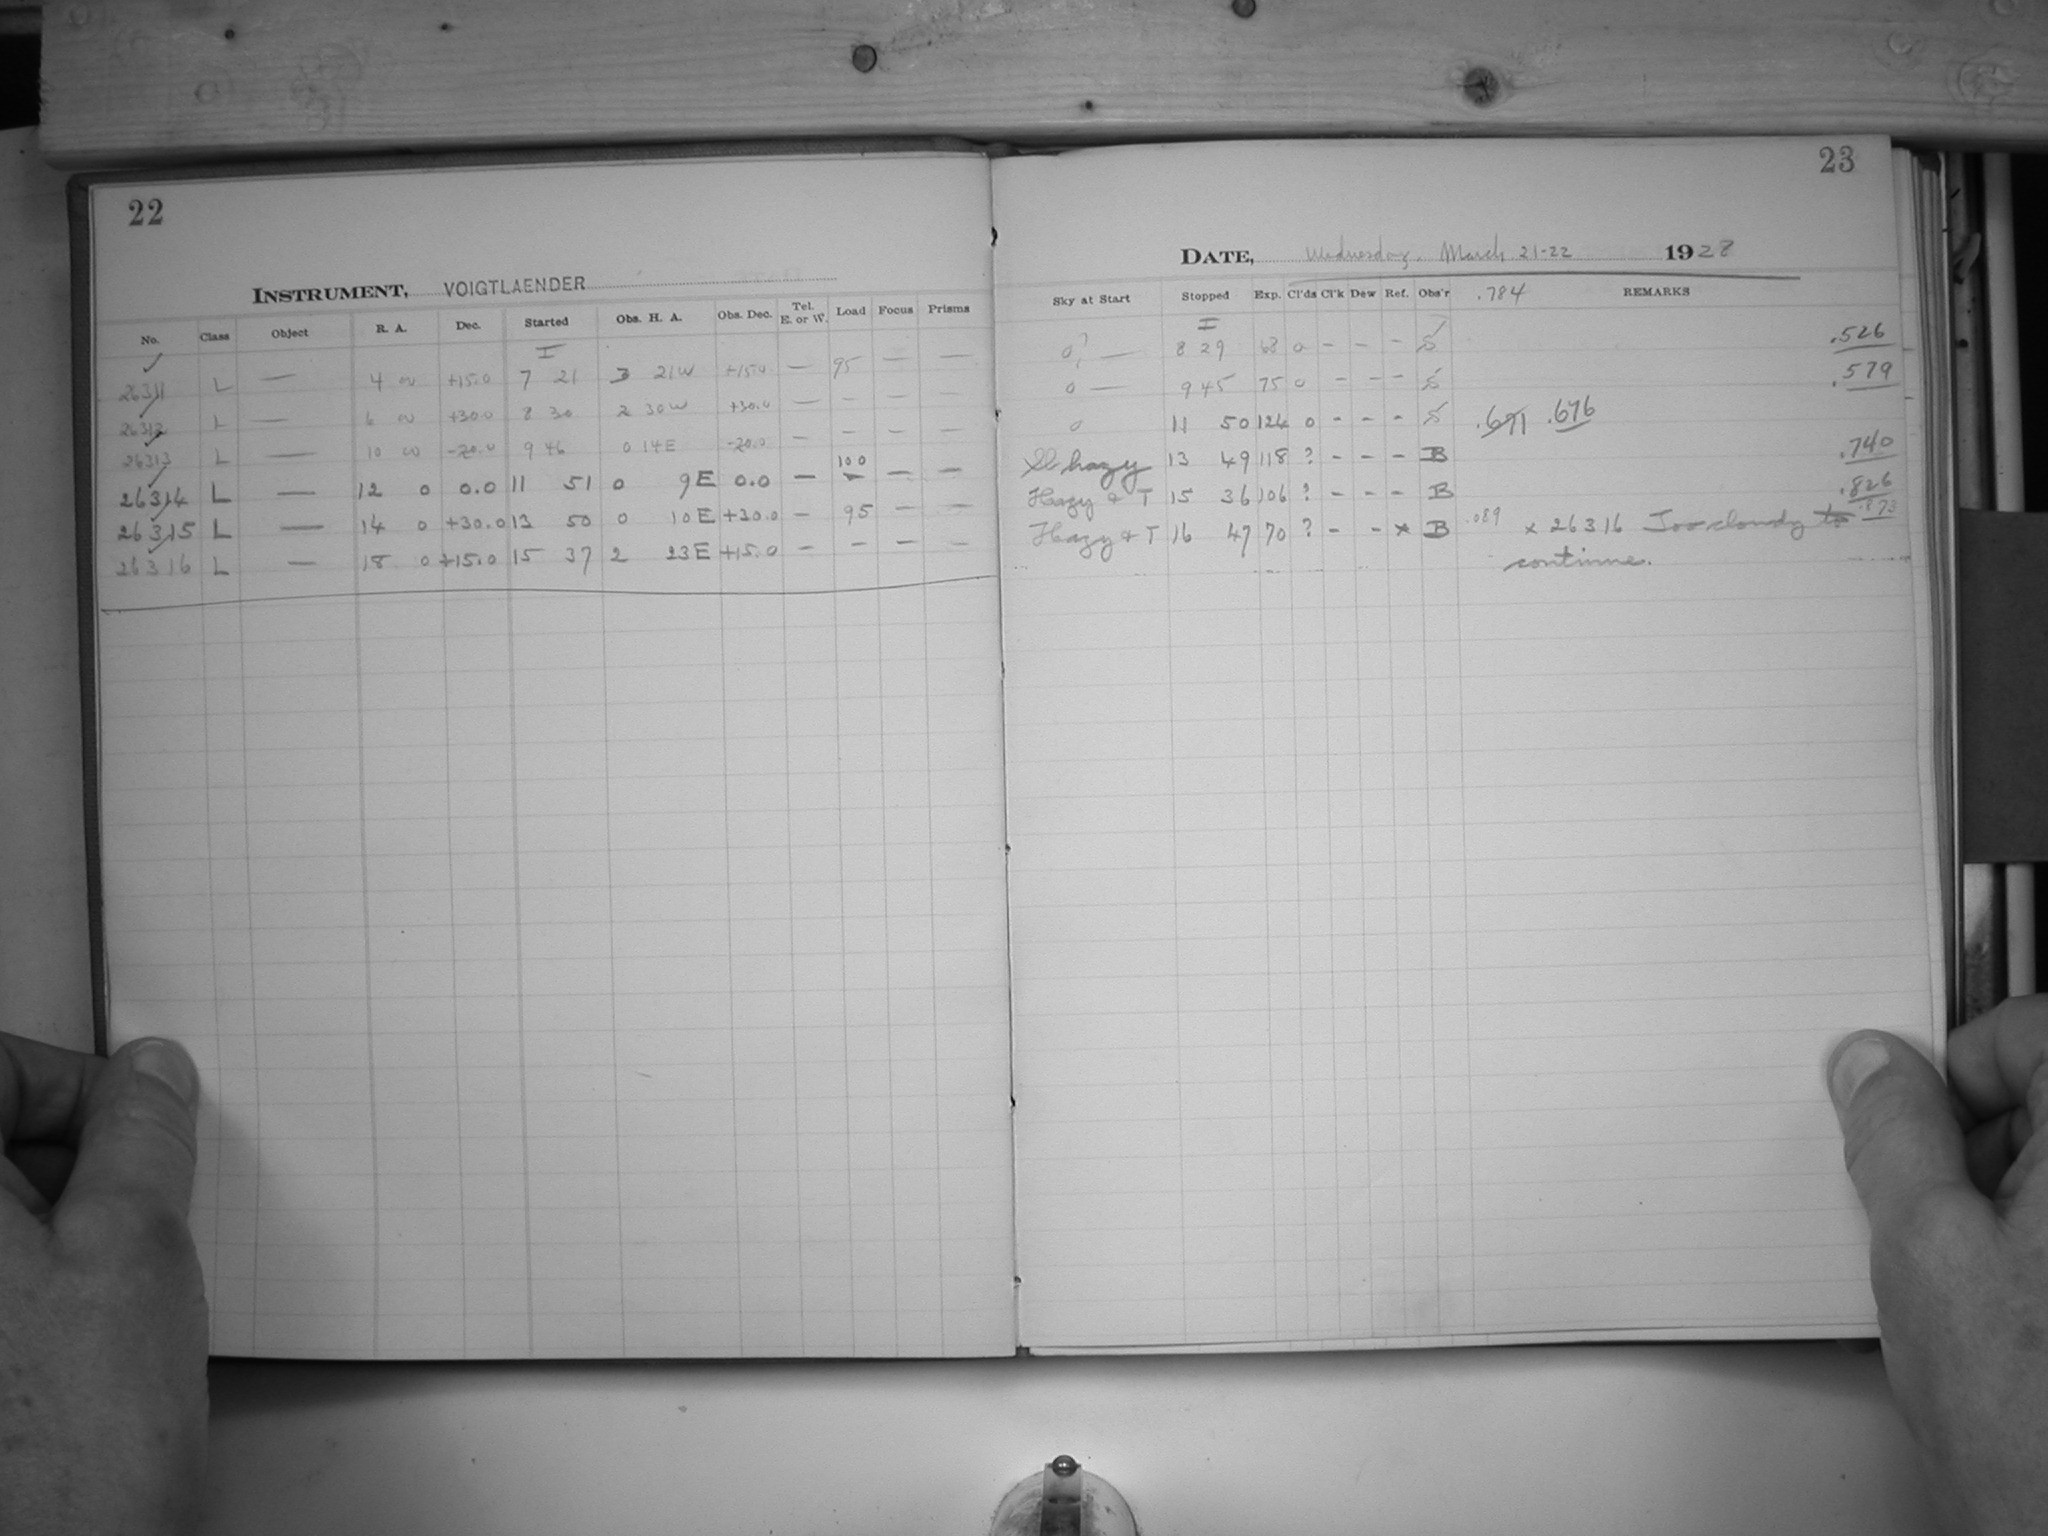 22
INSTRUMENT, VOIGTLAENDER
No. Class Object R. A. Dec. Started Obs. H. A. Obs. Dec. Tel. E. or W. Load Focus Prisms
I
26311 L — 4 +15.0 7 21 3 21W +15.0 — 95 — —
26312 L — 6 +30.0 8 30 2 30W +30.0 — — — —
26313 L — 10 -20.0 9 46 0 14E -20.0 — — — —
26314 L — 12 0 0.0 11 51 0 9E 0.0 — 100 — —
26315 L — 14 0 +30.0 13 50 0 10E +30.0 — 95 — —
26316 L — 18 0 +15.0 15 37 2 23E +15.0 — — — —
23
DATE, Wednesday, March 21-22 1928
Sky at Start Stopped Exp. Cl'ds Cl'k Dew Ref. Obs'r .784 REMARKS
I
0? — 8 29 68 0 – – – .526
0 — 9 45 75 0 – – – .579
0 11 50 124 0 – – – .671 .676
Sl hazy 13 49 118 ? – – – B .740
Hazy & T 15 36 106 ? – – – B .826
Hazy & T 16 47 70 ? – – * B .089 x 26316 Too cloudy to .873
continue.